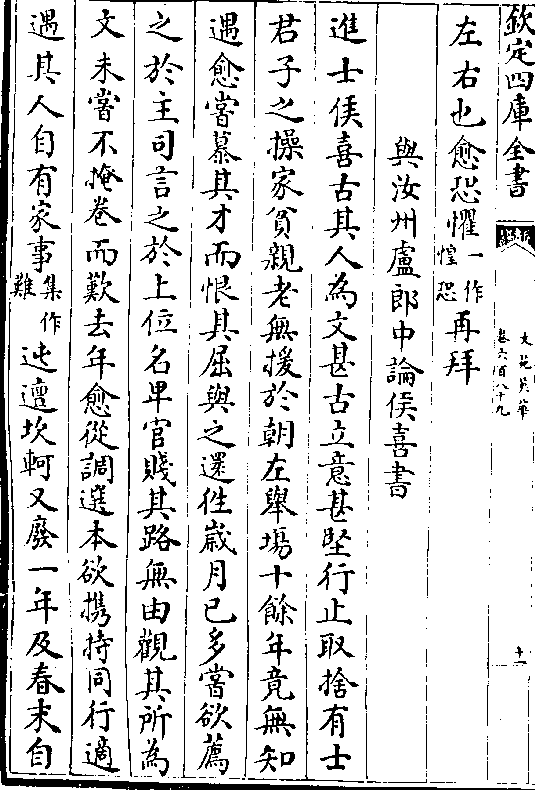 欽定四庫全書
文苑英華
卷六百八十九
十一
左右也愈恐懼一作惶恐再拜
與汝州盧郎中論侯喜書
進士侯喜古其人為文甚古立意甚堅行止取捨有士
君子之操家貧親老無援於朝左舉塲十餘年竟無知
遇愈嘗慕其才而恨其屈與之還徃嵗月已多嘗欲薦
之於主司言之於上位名卑官賤其路無由觀其所為
文未嘗不掩卷而歎去年愈從調選本欲携持同行適
遇其人自有家事集作難迍邅坎軻又廢一年及春末自